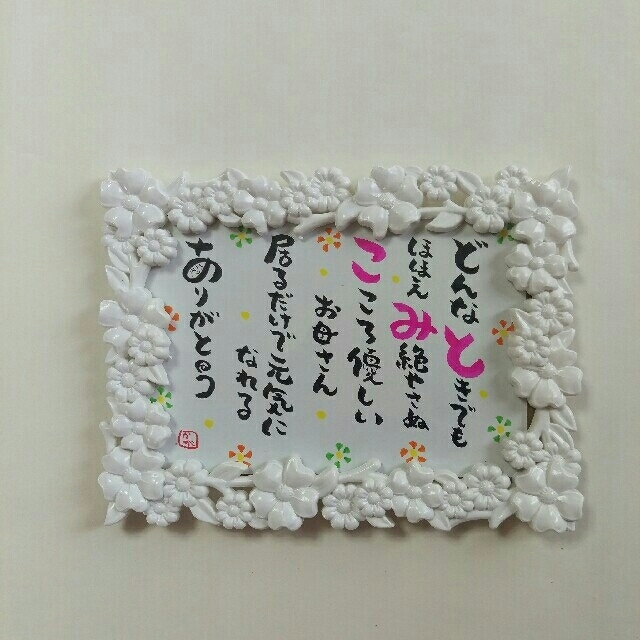 どんなときでも
ほほえみ絶やさぬ
こころ優しい
お母さん
居るだけで元気に
なれる
ありがとう